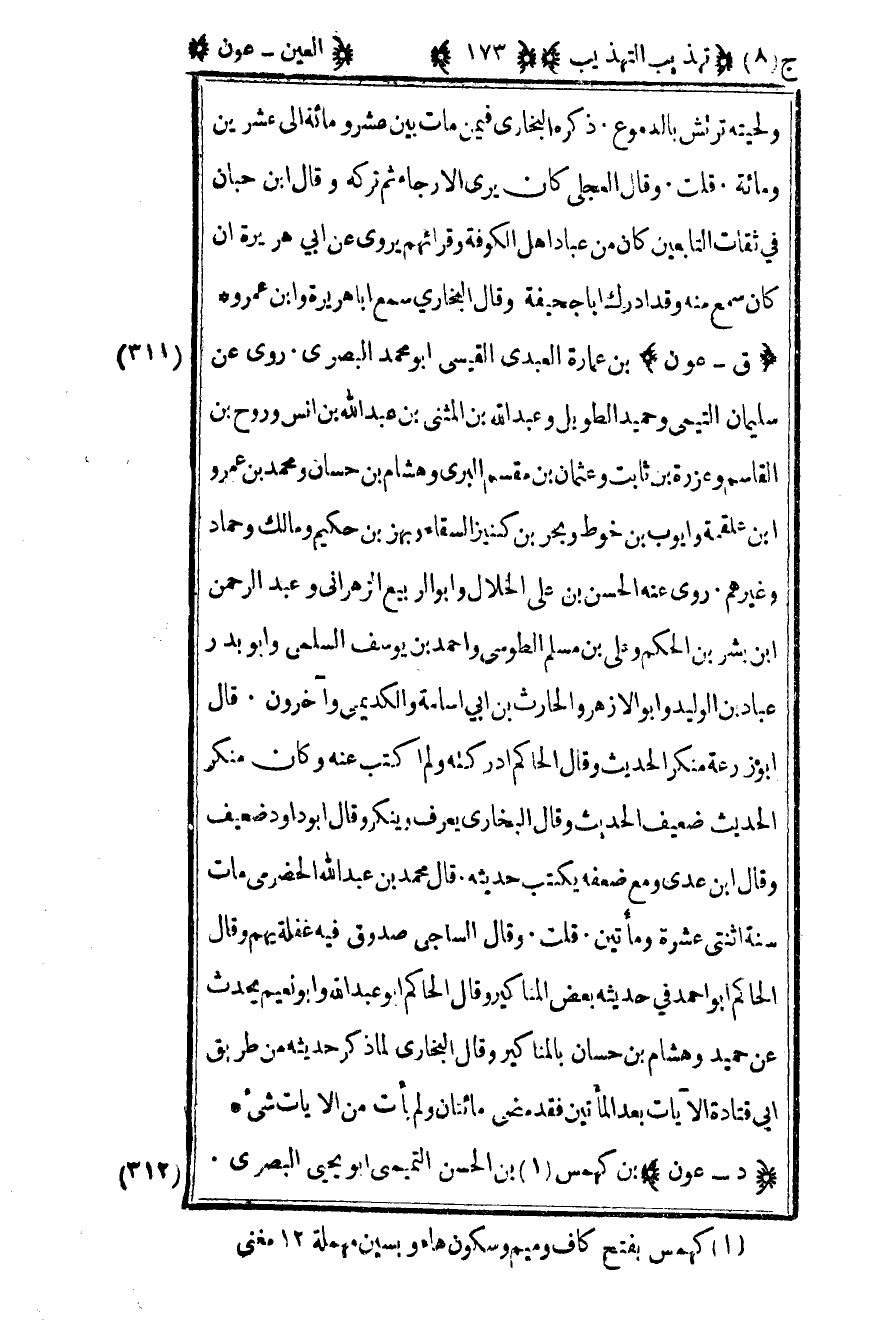 ج (٨) ﴿ تهذيب التهذيب ﴾ ﴿ ١٧٣ ﴾ ﴿ العين - عون ﴾
ولحيته ترتش بالدموع · ذكره البخارى فيمن مات بين عشر ومائة الى عشرين
ومائة · قلت · وقال العجلى كان يرى الارجاء ثم تركه وقال ابن حبان
في ثقات التابعين كان من عباد اهل الكوفة وقرائهم يروى عن ابي هريرة ان
كان سمع منه وقد ادرك ابا جحيفة وقال البخاري سمع ابا هريرة وابن عمرو *
﴿ ق - عون ﴾ بن عمارة العبدى القيسى ابو محمد البصرى · روى عن (٣١١)
سليمان التيمى وحميد الطويل وعبد الله بن المثنى بن عبد الله بن انس وروح بن
القاسم وعزرة بن ثابت وعثمان بن مقسم البرى وهشام بن حسان ومحمد بن عمرو
ابن علقمة وايوب بن خوط وبحر بن كنيز السقاء وبهز بن حكيم ومالك وحماد
وغيرهم · روى عنه الحسن بن على الخلال وابو الربيع الزهرانى وعبد الرحمن
ابن بشر بن الحكم وعلى بن مسلم الطوسى واحمد بن يوسف السلمى وابو بدر
عباد بن الوليد وابو الازهر والحارث بن ابي اسامة والكديمى وآخرون · قال
ابو زرعة منكر الحديث وقال الحاكم ادركته ولم اكتب عنه وكان منكر
الحديث ضعيف الحديث وقال البخارى يعرف وينكر وقال ابو داود ضعيف
وقال ابن عدى ومع ضعفه يكتب حديثه · قال محمد بن عبد الله الحضرمى مات
سنة اثنتى عشرة ومأتين · قلت · وقال الساجى صدوق فيه غفلة يهم وقال
الحاكم ابو احمد في حديثه بعض المناكير وقال الحاكم ابو عبد الله وابو نعيم يحدث
عن حميد وهشام بن حسان بالمناكير وقال البخارى لما ذكر حديثه من طريق
ابي قتادة الآيات بعد المأتين فقد مضى مائتان ولم يأت من الايات شىء *
﴿ د - عون ﴾ بن كهمس (١) بن الحسن التميمى ابو يحيى البصرى · (٣١٢)
(١) كهمس بفتح كاف وميم وسكون هاء وبسين مهملة ١٢ مغنى